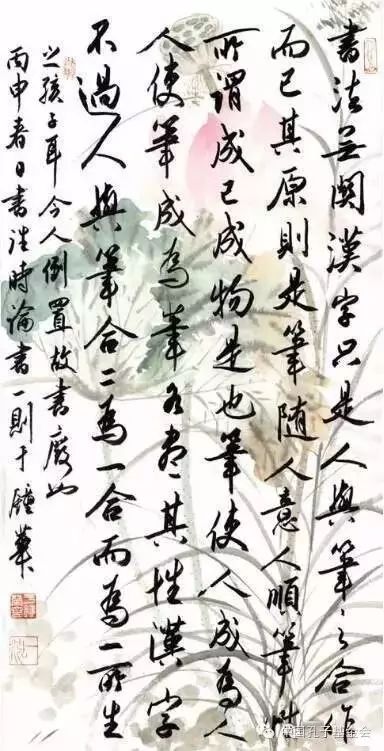 書法無關漢字只是人與筆之合作
而已其原則是筆隨人意人順筆性
所謂成己成物是也筆使人成為人
人使筆成為筆各盡其性漢字
不過人與筆合二為一合而為一所生
之孩子耳今人倒置故書廢也
丙申春日書往時論書一則于鐘華
中国孔子基金会